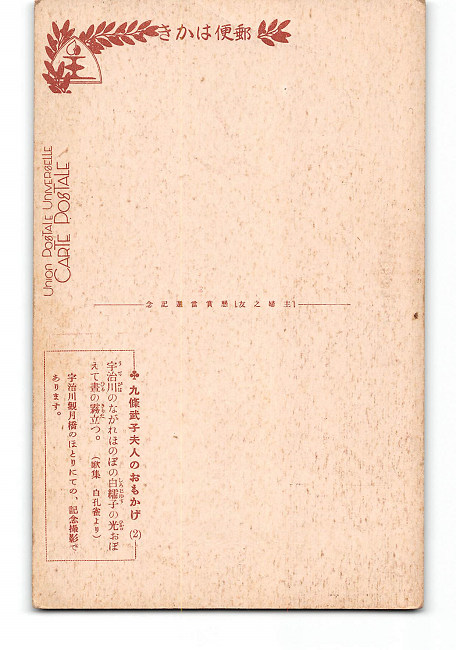 郵便はかき
主
Union Postale Universelle
Carte Postale
「主婦之友」懸賞當選記念
♣ 九條武子夫人のおもかげ (2)
宇治川のながれほのぼの白繻子の光おぼ
えて晝の霧立つ。 (歌集 白孔雀より)
宇治川觀月橋のほとりにての、記念撮影で
あります。